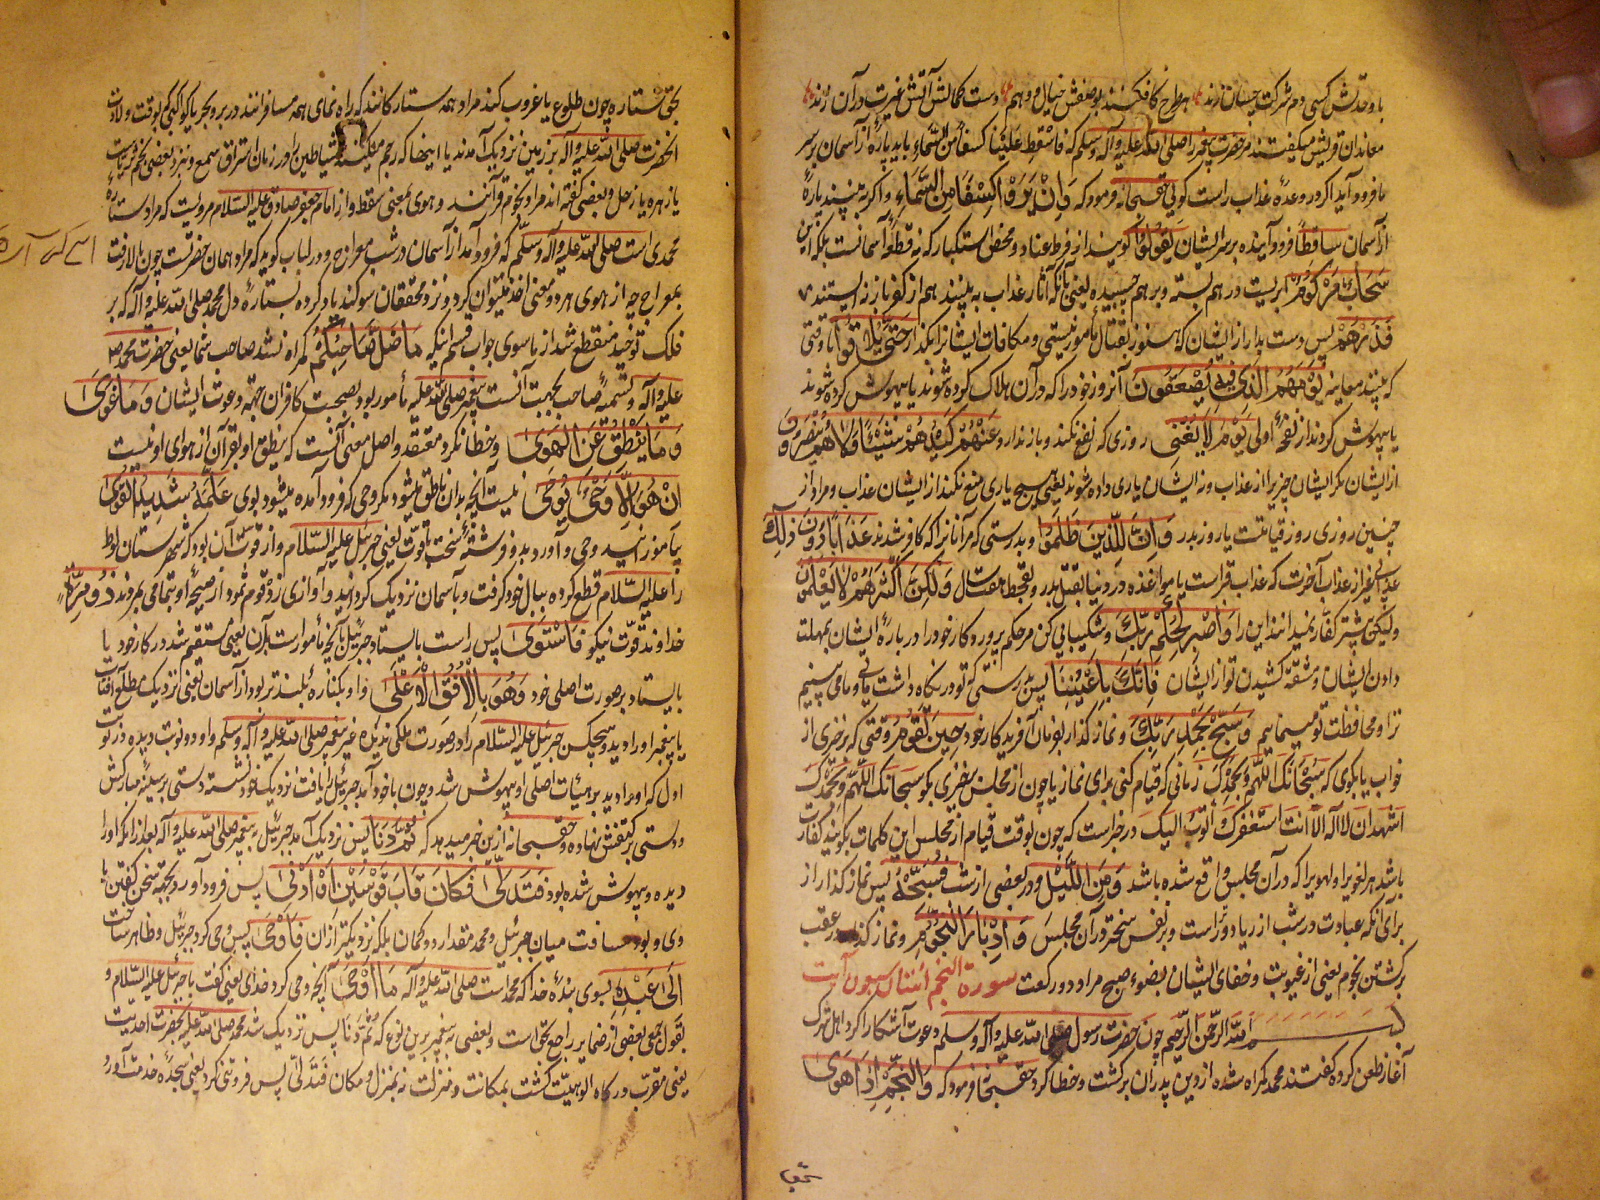 با وحدتش کسی دم شرکت چسان زند هر طرح کافکند بوصفش خیال و وهم دست کمالش آتش غیرت در آن زند
معاندان قریش میگفتند مر حضرت پیغمبر را صلی الله علیه وآله وسلم که فاسقط علینا کسفا من السماء باید پارهٔ از آسمان بر سر
ما فرود آید اگر در وعدهٔ عذاب راست گویی حقسبحانه فرمود که وَاِنْ يَرَوْا كِسْفًا مِنَ السَّمَاءِ و اگر به بینند پارهٔ
از آسمان سَاقِطًا فرود آینده بر سر ایشان يَقُولُوا گویند از فرط عناد و محض استکبار که نه قطعهٔ آسمانست بلکه این
سَحَابٌ مَرْكُومٌ ابریست در هم بسته و بر هم چسپیده یعنی بآنکه آثار عذاب به بینند هم از کفر باز نه ایستند
فَذَرْهُمْ پس دست بدار از ایشان که هنوز بقتال مأمور نیستی و مکافات ایشانرا بگذار حَتَّى يُلَاقُوا تا وقتی
که بینند معاینه يَوْمَهُمُ الَّذِي فِيهِ يُصْعَقُونَ آنروز خود را که در آن هلاک کرده شوند یا بیهوش کرده شوند
یا بیهوش کردند از نفخهٔ اولی يَوْمَ لَا يُغْنِي روزی که نفع نکند و باز ندارد عَنْهُمْ كَيْدُهُمْ شَيْئًا وَلَا هُمْ يُنْصَرُونَ
از ایشان مکر ایشان چیزیرا از عذاب و نه ایشان یاری داده شوند یعنی هیچ یاری منع نکند از ایشان عذاب و مراد از
چنین روزی روز قیامت یا روز بدر وَاِنَّ لِلَّذِينَ ظَلَمُوا و بدرستی که مر آنانرا که کافر شدند عَذَابًا دُونَ ذَلِكَ
عذابی غیر از عذاب آخرت که عذاب قبر است یا مواخذه در دنیا بقتل بدر و بقحط هفت سال وَلَكِنَّ اَكْثَرَهُمْ لَا يَعْلَمُونَ
ولیکن بیشتر کفار نمیدانند این را وَاصْبِرْ لِحُكْمِ رَبِّكَ و شکیبایی کن مر حکم پروردگار خود را در بارهٔ ایشان بمهلت
دادن ایشان و مشقت کشیدن تو از ایشان فَاِنَّكَ بِاَعْيُنِنَا پس بدرستی که تو در نگاه داشت مائی و ما می بینیم
ترا و محافظت تو مینمائیم وَسَبِّحْ بِحَمْدِ رَبِّكَ و نماز گذار بفرمان آفریدگار خود حِينَ تَقُومُ وقتی که برخیزی از
خواب یا بگوی که سبحانک اللهم وبحمدک زمانی که قیام کنی برای نماز یا چون از مجلس برخیزی بگو سبحانک اللهم وبحمدک
اشهد ان لا اله الا انت استغفرک و اتوب الیک در خبر است که چون بوقت قیام از مجلس این کلمات بگویند کفارت
باشد هر لغویرا و لهویرا که در آن مجلس واقع شده باشد وَمِنَ اللَّيْلِ و در بعضی از شب فَسَبِّحْهُ پس نماز گذار از
برای آنکه عبادت در شب از ریا دورتر است و بر نفس سختتر در آن مجلس وَاِدْبَارَ النُّجُومِ و نماز گذار در عقب
برگشتن نجوم یعنی از غیوبت و خفای ایشان بضوء صبح مراد دو رکعت سورة النجم
بسم الله الرحمن الرحیم چون حضرت رسول صلی الله علیه وآله وسلم دعوت آشکارا کرد اهل شرک
آغاز طعن کرده گفتند محمد گمراه شده از دین پدران برگشت و خطا کرد حقسبحانه فرمود که وَالنَّجْمِ اِذَا هَوَى
بحق
بحق ستاره چون طلوع یا غروب کند مراد همه ستارگانند که راه نمای همه مسافرانند در بر و بحر یا کواکبی که بوقت ولادت
آنحضرت صلی الله علیه وآله بر زمین نزدیک آمدند یا اینها که رجم میکنند شیاطین را در زمان استراق سمع و نزد بعضی نجم ثریاست
یا زهره یا زحل و بعضی گفته اند مراد نجوم قرآنند و هوی بمعنی سقط و از امام جعفر صادق علیه السلام مرویست که مراد ستارهٔ
محمدی است صلی الله علیه وآله وسلم که فرود آمد از آسمان در شب معراج و در لباب گوید که مراد همان حضرت چون بالا رفت
بمعراج چه از هوی هر دو معنی اخذ میتوان کرد و نزد محققان سوگند یاد کرده بستارهٔ دل محمد صلی الله علیه وآله که بر
فلک توحید منقطع شد از ما سوی جواب قسم اینکه مَا ضَلَّ صَاحِبُكُمْ گمراه نشد صاحب شما یعنی حضرت محمد ص
علیه وآله و تسمیهٔ صاحب بجهت آنست پیغمبر صلی الله علیه مأمور بود بصحبت کافران جهة دعوت ایشان وَمَا غَوَى
وَمَا يَنْطِقُ عَنِ الْهَوَى و خطا نکرد معتقد و اصل معنی آنست که نطق او بقرآن از هوای او نیست
اِنْ هُوَ اِلَّا وَحْيٌ يُوحَى نیست آنچه بدان ناطق میشود مگر وحی که فرود آمده میشود بوی عَلَّمَهُ شَدِيدُ الْقُوَى
بیاموزانید وحی و آورد بدو فرشتهٔ سخت با قوت یعنی جبرئیل علیه السلام و از قوت آن بود که شهرستان لوط
را علیه السلام قطع کرده ببال خود گرفت و بآسمان نزدیک گردانید و آوازی زد قوم ثمود از صیحهٔ او بتمامی بمردند ذُو مِرَّةٍ
خداوند قوت نیکو فَاسْتَوَى پس راست بایستاد جبرئیل بآنچه مأمور است بدان یعنی مستقیم شد در کار خود یا
بایستاد بر صورت اصلی خود وَهُوَ بِالْاُفُقِ الْاَعْلَى و او بکنارهٔ بلندتر بود از آسمان یعنی نزدیک مطلع آفتاب
یا پیغمبر او را دید و هیچکس جبرئیل علیه السلام را در صورت ملکی ندیده غیر پیغمبر صلی الله علیه وآله وسلم و او دو نوبت دیده در نوبت
اول که او را دید بر هیأت اصلی او بیهوش شد و چون باخود آمد جبرئیل را یافت نزدیک خود نشسته دستی بر سینهٔ مبارکش
و دستی بر کتفش نهاده و حقسبحانه ازین خبر میدهد که ثُمَّ دَنَا پس نزدیک آمد جبرئیل به پیغمبر صلی الله علیه وآله بعد از آنکه او را
دیده و بیهوش شده بود فَتَدَلَّى فَكَانَ قَابَ قَوْسَيْنِ اَوْ اَدْنَى پس فرود آورد بجهة سخن گفتن با
وی و بود مسافت میان جبرئیل و محمد مقدار دو کمان بلکه نزدیکتر از آن فَاَوْحَى پس وحی کرد جبرئیل و ظاهر ساخت
اِلَى عَبْدِهِ بسوی بندهٔ خدا که محمد است صلی الله علیه وآله مَا اَوْحَى آنچه وحی کرد خدای یعنی گفت با جبرئیل علیه السلام و
بقول جمعی بعضی از ضمایر راجع بحق است و بعضی به پیغمبر برین نوع که ثُمَّ دَنَا پس نزدیک شد محمد صلی الله علیه بحضرت احدیت
یعنی مقرب درگاه الوهیت گشت بمکانت و منزلت نه بمنزل و مکان فَتَدَلَّى پس فروتنی کرد یعنی سجدهٔ خدمت آورد